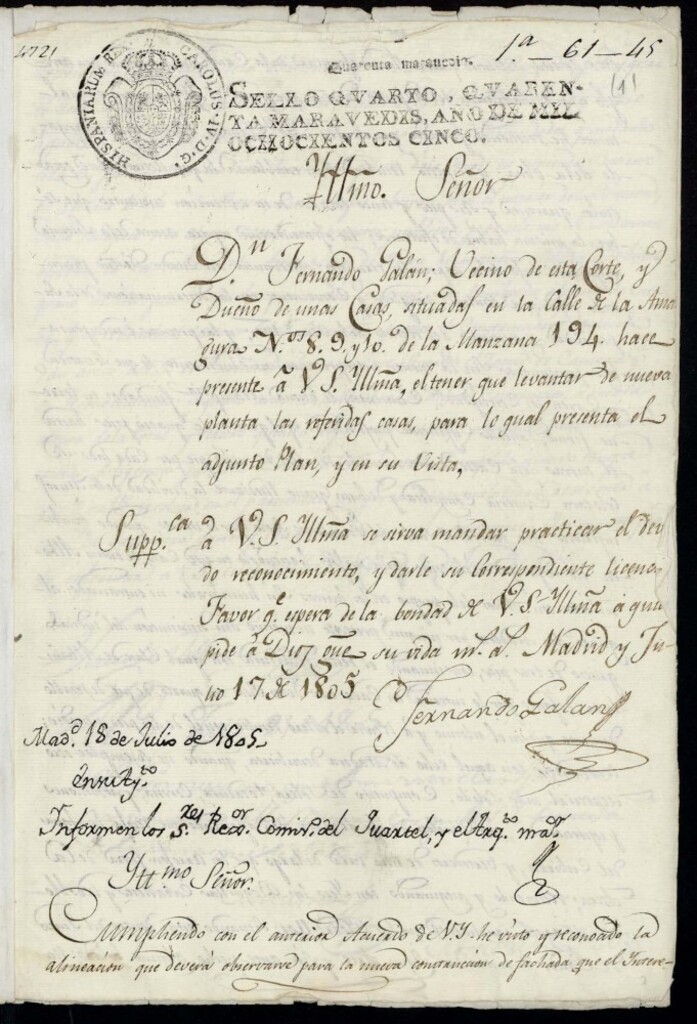 4721
1ª — 61 — 45
(1)
HISPANIARUM REX CAROLUS·IV·D·G·
Quarenta maravedis.
SELLO QVARTO, QVAREN-
TA MARAVEDIS, AÑO DE MIL
OCHOCIENTOS CINCO.
Yllmo. Señor
D.ⁿ Fernando Galán, Vecino de esta Corte, y
Dueño de unas Casas, situadas en la Calle de la Ama
gura N.ºˢ 8. 9. y 10. de la Manzana 194. hace
presente â V. S. Yllmã, el tener que levantar de nueva
planta las referidas casas, para lo qual presenta el
adjunto Plan, y en su Vista,
Supp.ᶜᵃ â V. S. Yllmã se sirva mandar practicar el de
do reconocimiento, y darle su Correspondiente licenc
Favor q.ᵉ espera de la bondad de V. S. Yllmã â quie
pide â Dios gûe su vida m.ˢ a.ˢ Madrid y Ju-
lio 17 de 1805
Fernando Galan
Mad.ᵈ 18 de Julio de 1805.
en su Ay.ᵗᵒ
Informen los S.ʳᵉˢ Rec.ᵒʳ Comis.º del Quartel, y el Arq.ᵗᵒ m.ᵒʳ
Yll.ᵐᵒ Señor.
Cumpliendo con el anterior Acuerdo de V.Y. he visto y reconocido la
alineacion que deverá observarse para la nueva construccion de fachada que el Intere-